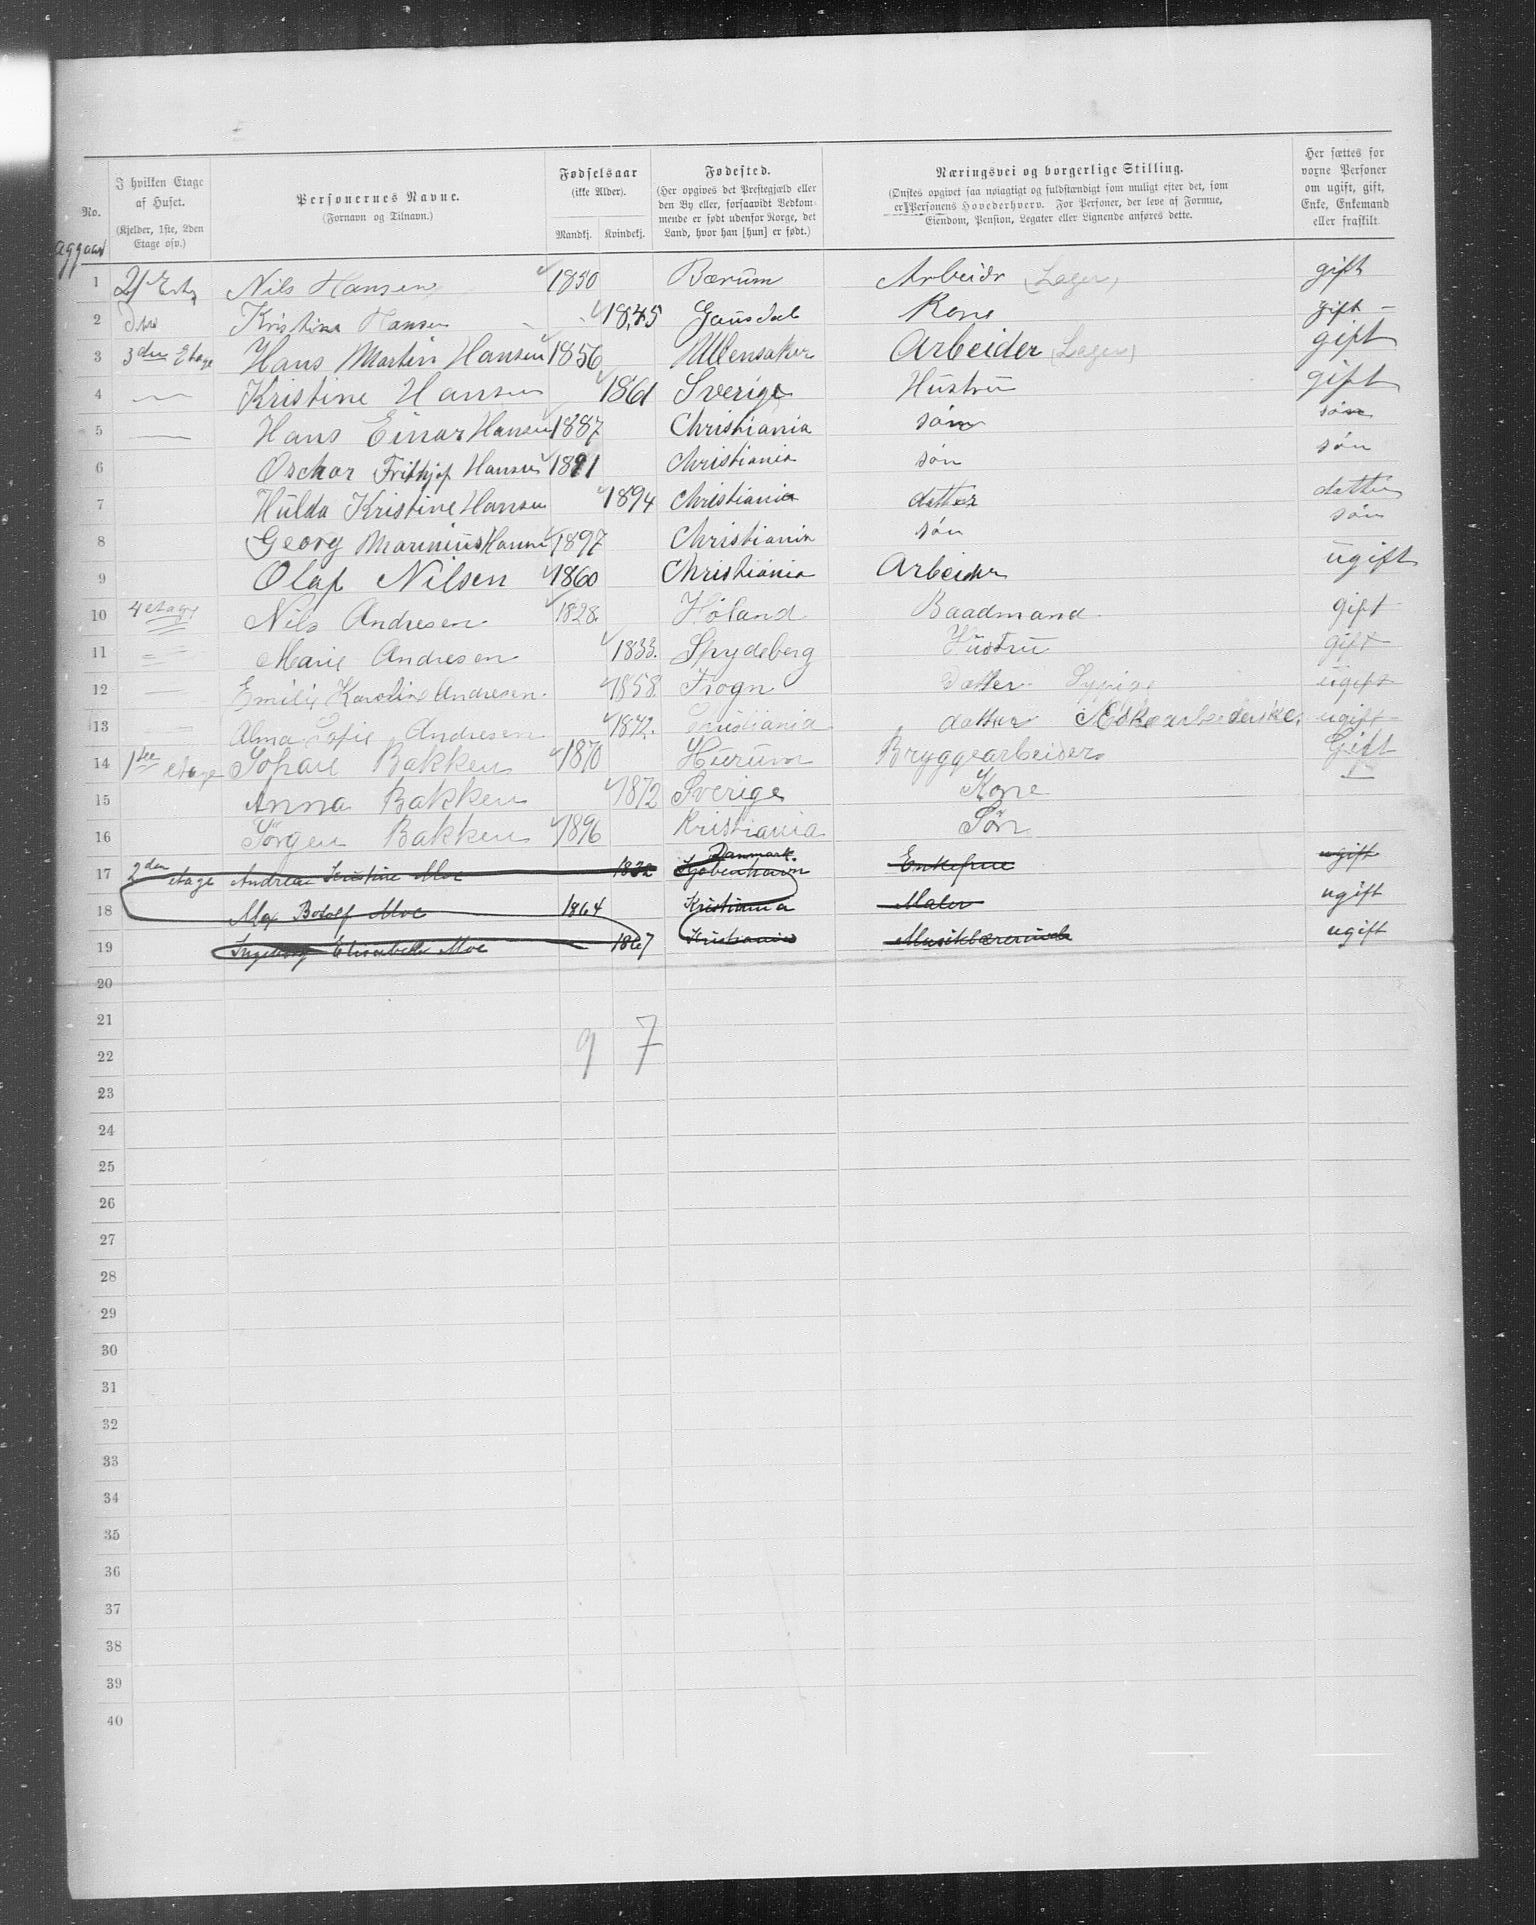 No.
I hvilken Etage af Huset.
(Kjelder, 1ste, 2den Etage osv.)
Personernes Navne.
(Fornavn og Tilnavn.)
Fødselsaar
(ikke Alder).
Mandkj. Kvindekj.
Fødested.
(Her opgives det Prestegjæld eller den By eller, forsaavidt Vedkommende er født udenfor Norge, det Land, hvor han [hun] er født.)
Næringsvei og borgerlige Stilling.
(Ønskes opgivet saa nøiagtigt og fuldstændigt som muligt efter det, som er Personens Hovederhverv. For Personer, der leve af Formue, Eiendom, Pension, Legater eller Lignende anføres dette.
Her sættes for voxne Personer om ugift, gift, Enke, Enkemand eller fraskilt.
1 Nils Hansen 1850 Bærum Arbeidr (Lager) gift
2 Kristine Hansen 1845 Gausdal Kone gift
3 3den Etage Hans Martin Hansen 1856 Ullensaker Arbeider (Lager) gift
4 Kristine Hansen 1861 Sverige Hustru gift
5 Hans Einar Hansen 1887 Christiania søn søn
6 Oschar Frithjof Hansen 1891 Christiania søn søn
7 Hulda Kristine Hansen 1894 Christiania datter datter
8 Georg Marinius Hansen 1897 Christiania søn søn
9 Olaf Nilsen 1860 Christiania Arbeider ugift
10 4 etage Nils Andresen 1828. Høland Baadmand gift
11 Marie Andresen 1833. Spydeberg Hustru gift
12 Emilie Karoline Andresen. 1858. Frogn Datter Sypige ugift
13 Alma Sofie Andresen 1872. Christiania datter Æskearbeiderske. ugift
14 1ste etage Johan Bakken 1870 Hurum Bryggearbeider Gift
15 Anna Bakken 1872 Sverige Kone
16 Jørgen Bakken 1896 Kristiania Søn
17 2den etage Andrea Kristine Moe 1832 Kjøbenhavn Danmark. Enkefrue ugift
18 Max Botolf Moe 1864 Kristiania Maler ugift
19 Ingeborg Elisabeth Moe 1867 Kristiania Musiklærerinde ugift
20
21
9 7
22
23
24
25
26
27
28
29
30
31
32
33
34
35
36
37
38
39
40